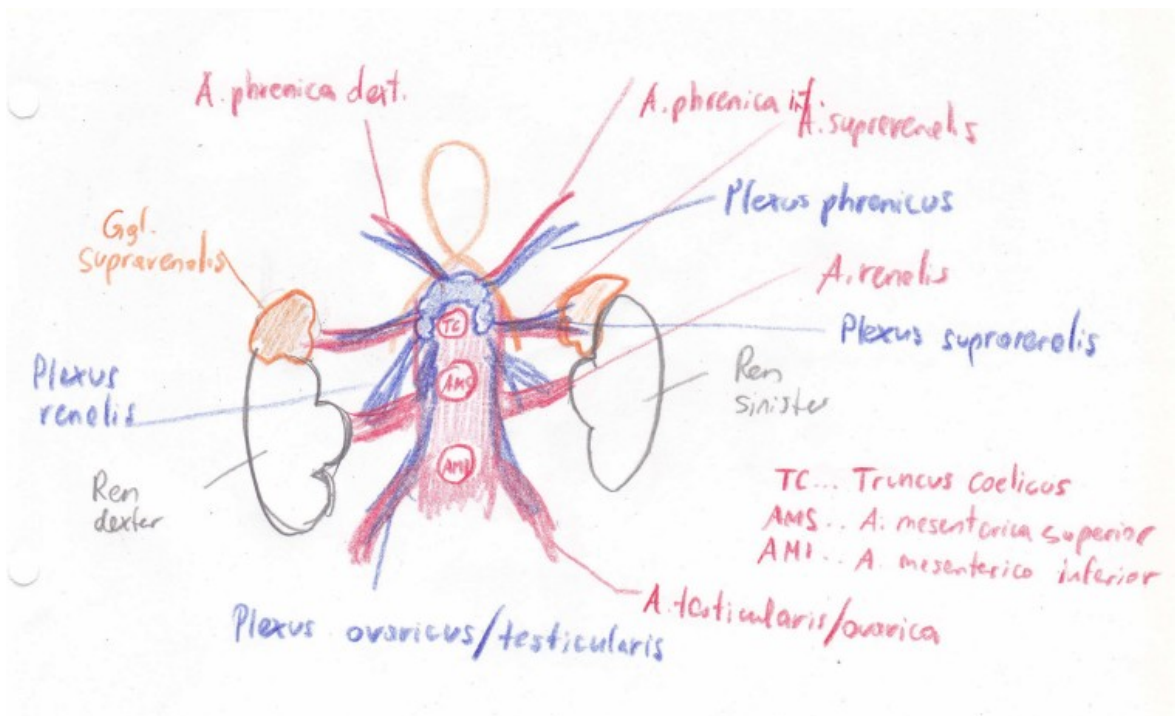 A. phrenica dext.
A. phrenica inf.
A. suprarenalis
Plexus phrenicus
Ggl.
suprarenalis
A. renalis
TC
Plexus suprarenalis
Plexus
renalis
AMS
Ren
sinister
AMI
Ren
dexter
TC... Truncus coelicus
AMS.. A. mesenterica superior
AMI.. A. mesenterica inferior
A. testicularis/ovarica
Plexus ovaricus/testicularis